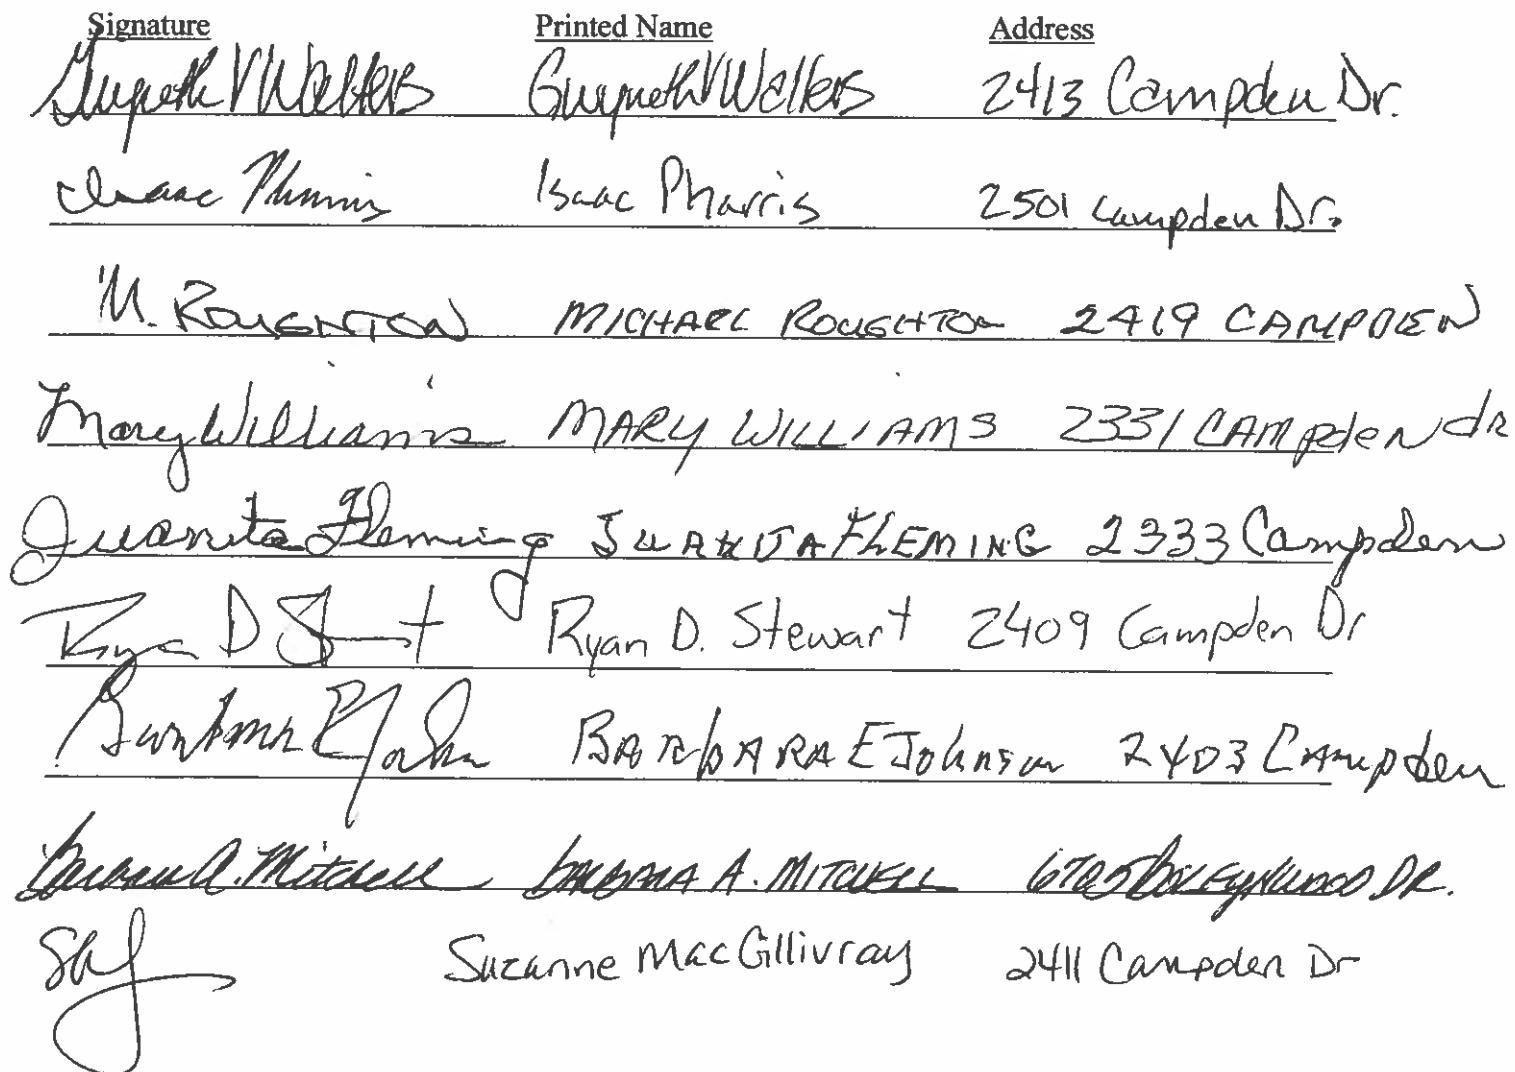 Signature Printed Name Address
Gwyneth V Walters Gwyneth V Walters 2413 Campden Dr.
Isaac Pharris Isaac Pharris 2501 Campden Dr.
M. ROUGHTON MICHAEL ROUGHTON 2419 CAMPDEN
Mary Williams MARY WILLIAMS 2331 CAMpdeN dR
Juanita Fleming JUANITA FLEMING 2333 Campden
Ryan D Stewart Ryan D. Stewart 2409 Campden Dr
Barbara E Johnson BARbARA E Johnson 2403 CAmpden
Barbara A. Mitchell BARBARA A. MITCHELL 6705 DR.
Suzanne MacGillivray 2411 Campden Dr